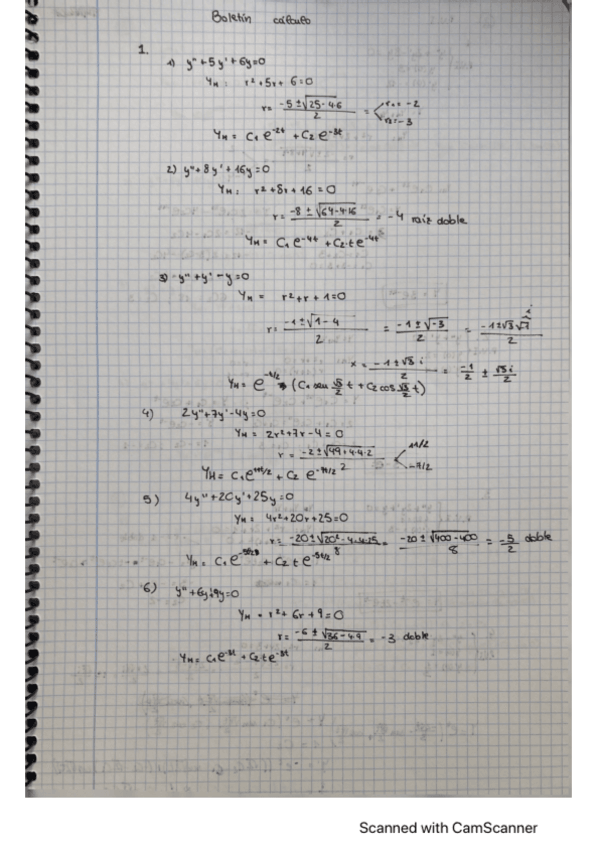 Boletín cálculo
1.
1) y'' + 5y' + 6y = 0
Y_H: r² + 5r + 6 = 0
r = (-5 ± √(25 - 4·6))/2 = < r₁ = -2
r₂ = -3
Y_H = C₁ e^(-2t) + C₂ e^(-3t)
2) y'' + 8y' + 16y = 0
Y_H: r² + 8r + 16 = 0
r = (-8 ± √(64 - 4·16))/2 = -4 raíz doble
Y_H = C₁ e^(-4t) + C₂·t e^(-4t)
3) y'' + y' - y = 0
Y_H = r² + r + 1 = 0
r = (-1 ± √(1 - 4))/2 = (-1 ± √-3)/2 = (-1 ± √3 √-1)/2 i
x = (-1 ± √3 i)/2 = -1/2 ± √3 i/2
Y_H = e^(-t/2) (C₁ sen √3/2 t + C₂ cos √3/2 t)
4) 2y'' + 7y' - 4y = 0
Y_H = 2r² + 7r - 4 = 0
r = (-2 ± √(49 + 4·4·2))/2 < 11/2
-7/2
Y_H = C₁ e^(11t/2) + C₂ e^(-7t/2)
5) 4y'' + 20y' + 25y = 0
Y_H = 4r² + 20r + 25 = 0
r = (-20 ± √(20² - 4·4·25))/8 = (-20 ± √(400 - 400))/8 = -5/2 doble
Y_H = C₁ e^(-5t/2) + C₂ t e^(-5t/2)
6) y'' + 6y' + 9y = 0
Y_H = r² + 6r + 9 = 0
r = (-6 ± √(36 - 4·9))/2 = -3 doble
Y_H = C₁ e^(-3t) + C₂ t e^(-3t)
Scanned with CamScanner